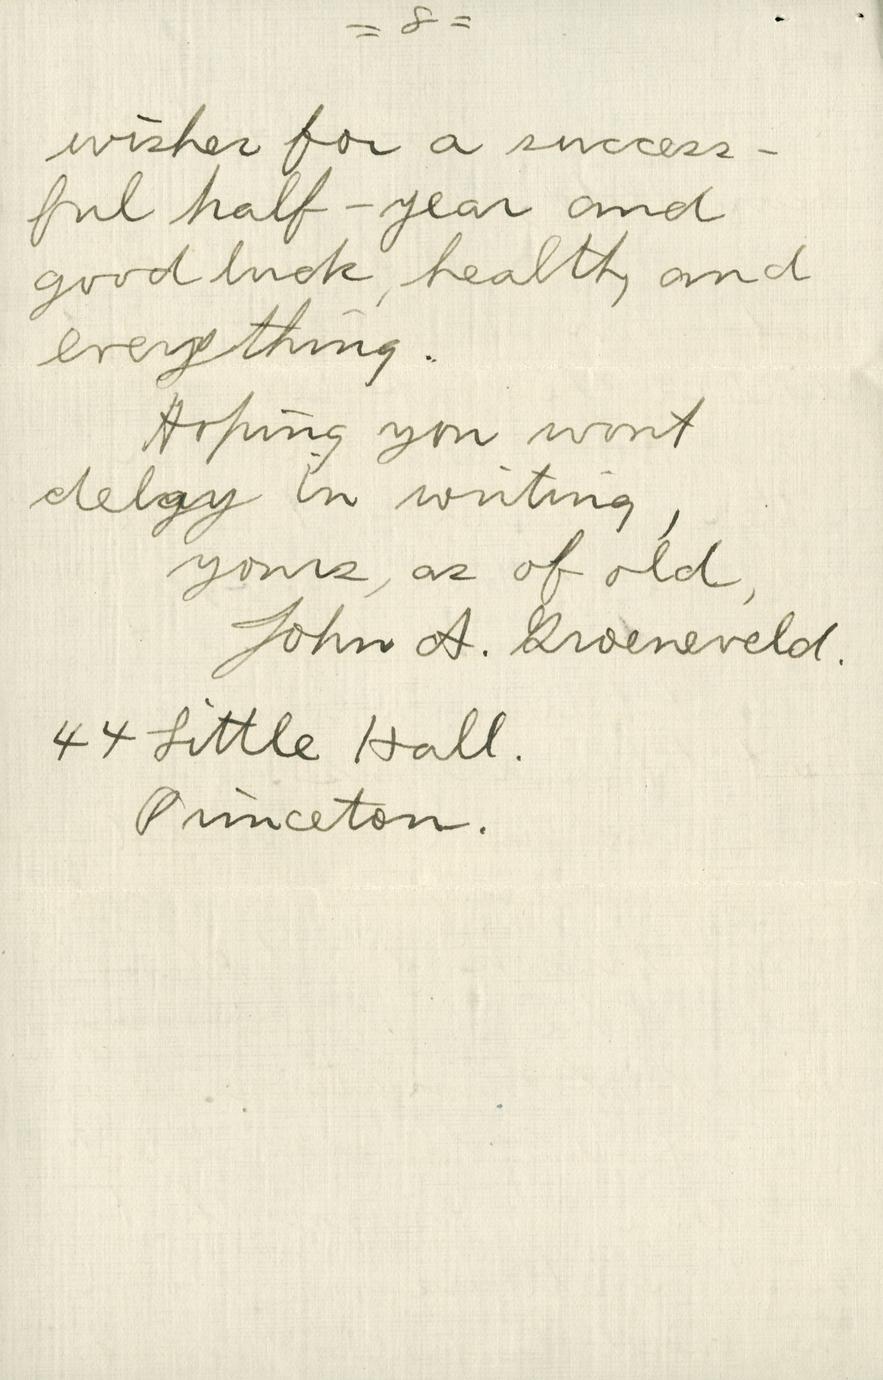 = 8 =
wishes for a success-
ful half-year and
good luck, health, and
everything.
Hoping you wont
delay in writing,
yours, as of old,
John A. Groeneveld.
44 Little Hall.
Princeton.